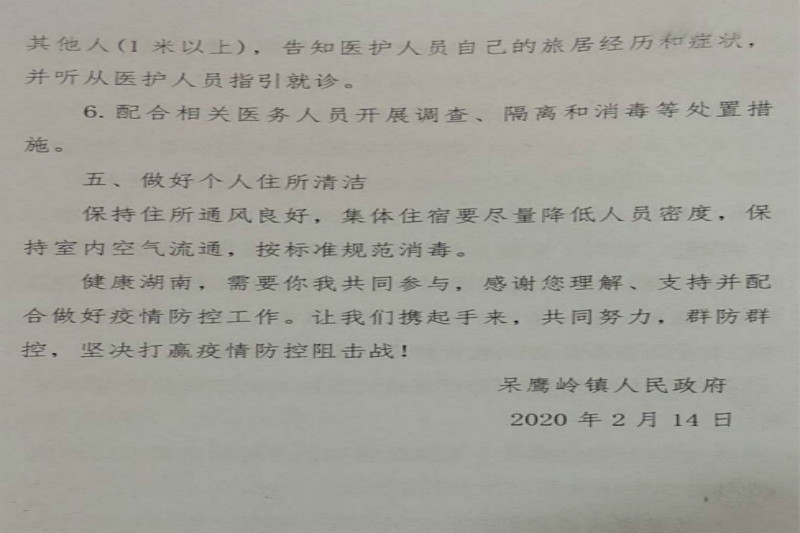 其他人(1 米以上)，告知医护人员自己的旅居经历和症状，
并听从医护人员指引就诊。
6. 配合相关医务人员开展调查、隔离和消毒等处置措
施。
五、做好个人住所清洁
保持住所通风良好，集体住宿要尽量降低人员密度，保
持室内空气流通，按标准规范消毒。
健康湖南，需要你我共同参与，感谢您理解、支持并配
合做好疫情防控工作。让我们携起手来，共同努力，群防群
控，坚决打赢疫情防控阻击战！
呆鹰岭镇人民政府
2020 年 2 月 14 日